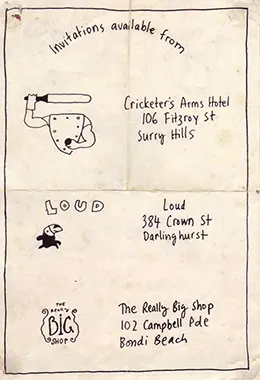 Invitations available from
Cricketer's Arms Hotel
106 Fitzroy St
Surry Hills
LOUD
Loud
384 Crown St
Darlinghurst
THE
REALLY
BIG
SHOP
The Really Big Shop
102 Campbell Pde
Bondi Beach